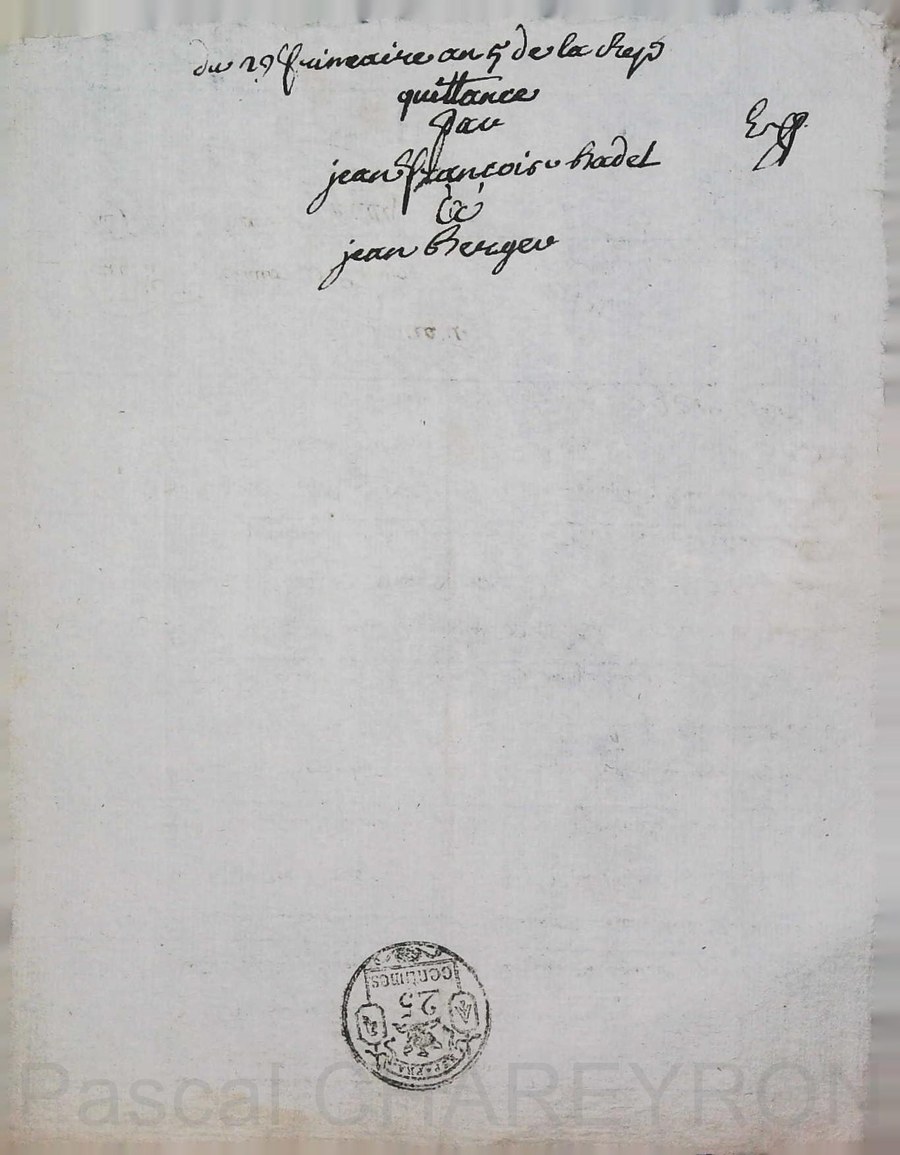 du 29 frimeaire an 5 de la Rep
quittance
par
jean françois badel
a
jean berger
Exp
25
centimes
REP. FRA.
Pascal CHAREYRON